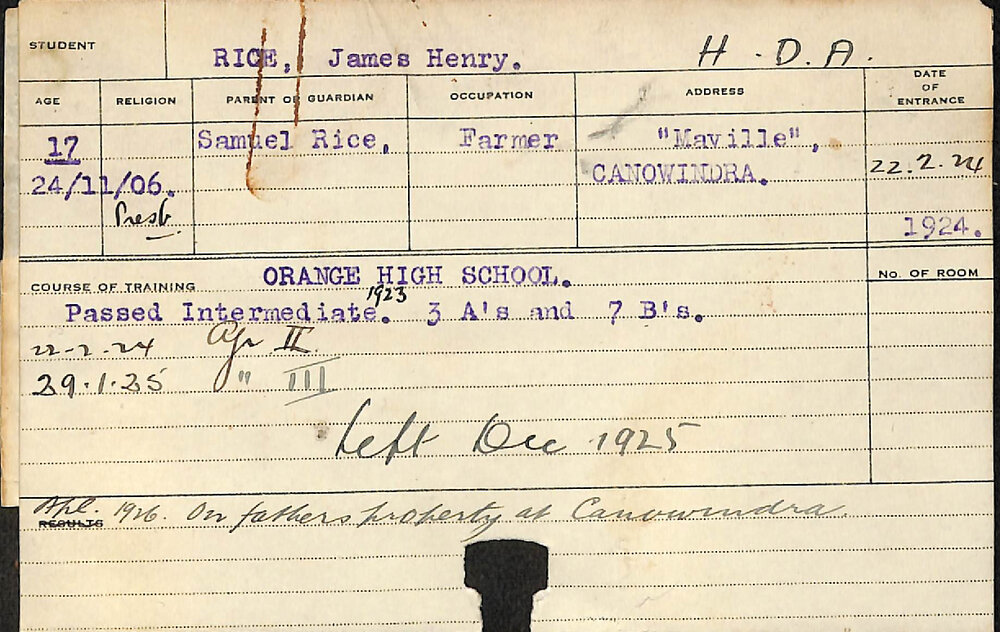 STUDENT RICE, James Henry. H.D.A.
AGE RELIGION PARENT OR GUARDIAN OCCUPATION ADDRESS DATE OF ENTRANCE
17 Samuel Rice, Farmer "Maville",
24/11/06. CANOWINDRA. 22.2.24
Presb. 1924.
COURSE OF TRAINING ORANGE HIGH SCHOOL. No. OF ROOM
Passed Intermediate. 1923 3 A's and 7 B's.
22-2-24 Agr II
29.1.25 " III
Left Dec 1925
RESULTS Apl. 1926. On fathers property at Canowindra.